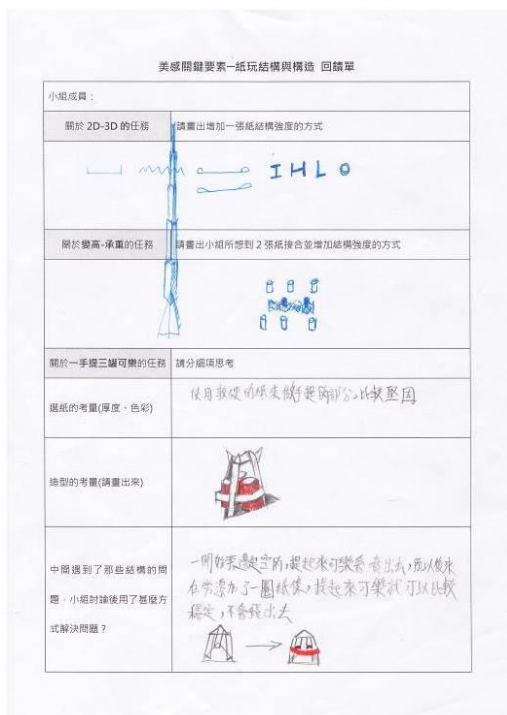 美感關鍵要素—紙玩結構與構造 回饋單
小組成員：
關於 2D-3D 的任務 請畫出增加一張紙結構強度的方式
I H L O
關於變高-承重的任務 請畫出小組所想到 2 張紙接合並增加結構強度的方式
關於一手提三罐可樂的任務 請分細項思考
選紙的考量(厚度、色彩)
使用較硬的紙來做手提的部分,比較堅固
造型的考量(請畫出來)
中間遇到了那些結構的問
題，小組討論後用了甚麼方
式解決問題？
一開始旁邊是空的,提起來可樂會 出去,所以後來
在旁邊加了一圈紙條,提起來可樂就可以比較
穩定,不會 出去